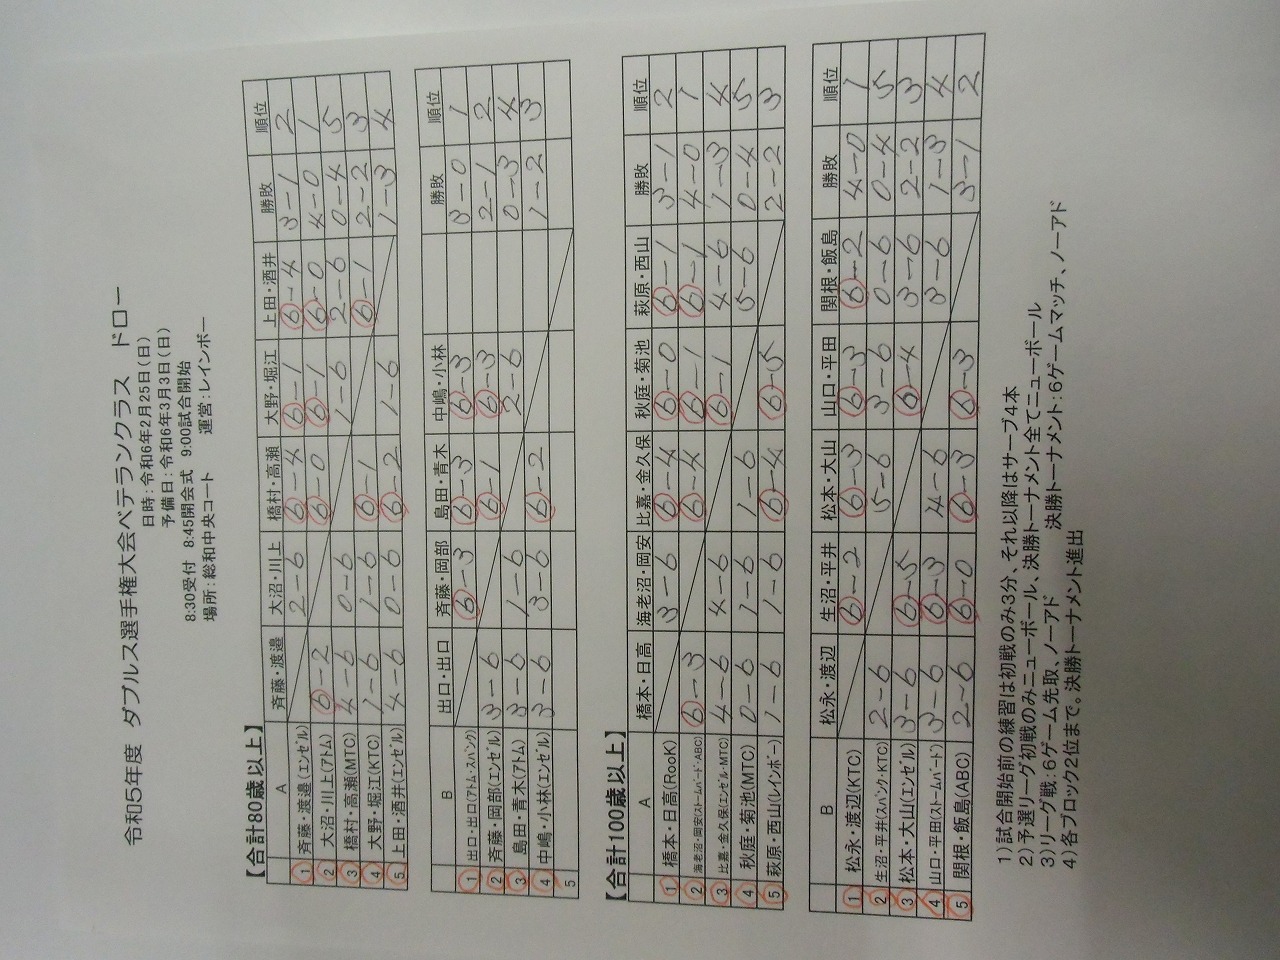 令和5年度 ダブルス選手権大会ベテランクラス ドロー
日時:令和6年2月25日(日)
予備日:令和6年3月3日(日)
8:30受付 8:45開会式 9:00試合開始
場所:総和中央コート 運営:レインボー
【合計80歳以上】
A 斉藤・渡邉 大沼・川上 橋村・高瀬 大野・堀江 上田・酒井 勝敗 順位
1 斉藤・渡邉(エンゼル) 2-6 6-4 6-1 6-4 3-1 2
2 大沼・川上(アトム) 6-2 6-0 6-1 6-0 4-0 1
3 橋村・高瀬(MTC) 4-6 0-6 1-6 2-6 0-4 5
4 大野・堀江(KTC) 1-6 1-6 6-1 6-1 2-2 3
5 上田・酒井(エンゼル) 4-6 0-6 6-2 1-6 1-3 4
B 出口・出口 斉藤・岡部 島田・青木 中嶋・小林 勝敗 順位
1 出口・出口(アトム・スパンク) 6-3 6-3 6-3 3-0 1
2 斉藤・岡部(エンゼル) 3-6 6-1 6-3 2-1 2
3 島田・青木(アトム) 3-6 1-6 2-6 0-3 4
4 中嶋・小林(エンゼル) 3-6 3-6 6-2 1-2 3
5
【合計100歳以上】
A 橋本・日高 海老沼・岡安 比嘉・金久保 秋庭・菊池 萩原・西山 勝敗 順位
1 橋本・日高(RooK) 3-6 6-4 6-0 6-1 3-1 2
2 海老沼・岡安(ストームバード・ABC) 6-3 6-4 6-1 6-1 4-0 1
3 比嘉・金久保(エンゼル・MTC) 4-6 4-6 6-1 4-6 1-3 4
4 秋庭・菊池(MTC) 0-6 1-6 1-6 5-6 0-4 5
5 萩原・西山(レインボー) 1-6 1-6 6-4 6-5 2-2 3
B 松永・渡辺 生沼・平井 松本・大山 山口・平田 関根・飯島 勝敗 順位
1 松永・渡辺(KTC) 6-2 6-3 6-3 6-2 4-0 1
2 生沼・平井(スパンク・KTC) 2-6 5-6 3-6 0-6 0-4 5
3 松本・大山(エンゼル) 3-6 6-5 6-4 3-6 2-2 3
4 山口・平田(ストームバード) 3-6 6-3 4-6 3-6 1-3 4
5 関根・飯島(ABC) 2-6 6-0 6-3 6-3 3-1 2
1)試合開始前の練習は初戦のみ3分、それ以降はサーブ4本
2)予選リーグ初戦のみニューボール、決勝トーナメント全てニューボール
3)リーグ戦:6ゲーム先取、ノーアド 決勝トーナメント:6ゲームマッチ、ノーアド
4)各ブロック2位まで。決勝トーナメント進出